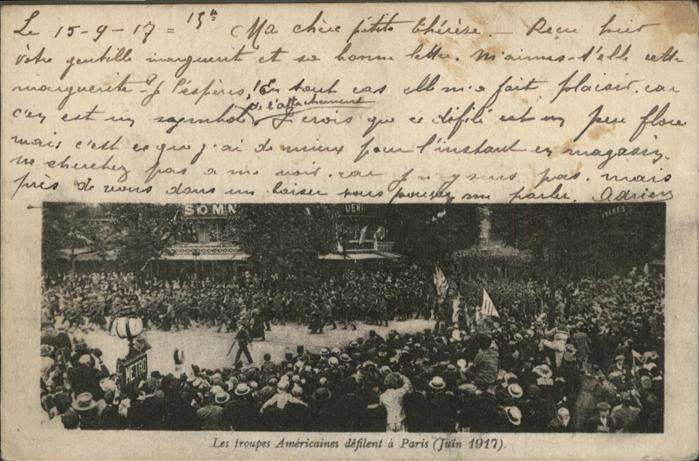 Le 15-9-17 = 15h Ma chère petite Thérèse — Reçu hier
votre gentille marguerite et sa bonne lettre. M'aimes-t'elle cette
marguerite — J l'espères, ! En tout cas elle m'a fait plaisir. car
de l'attachement
c'en est un symbole. Je crois que ce défilé est un peu flou
mais c'est ce que j'ai de mieux pour l'instant en magasin.
ne cherchez pas a me voir. car j n'y suis pas. mais
près de vous dans un baiser vous pouvez me parler. Adrien
SOMM
METRO
Les troupes Américaines défilent à Paris (Juin 1917).